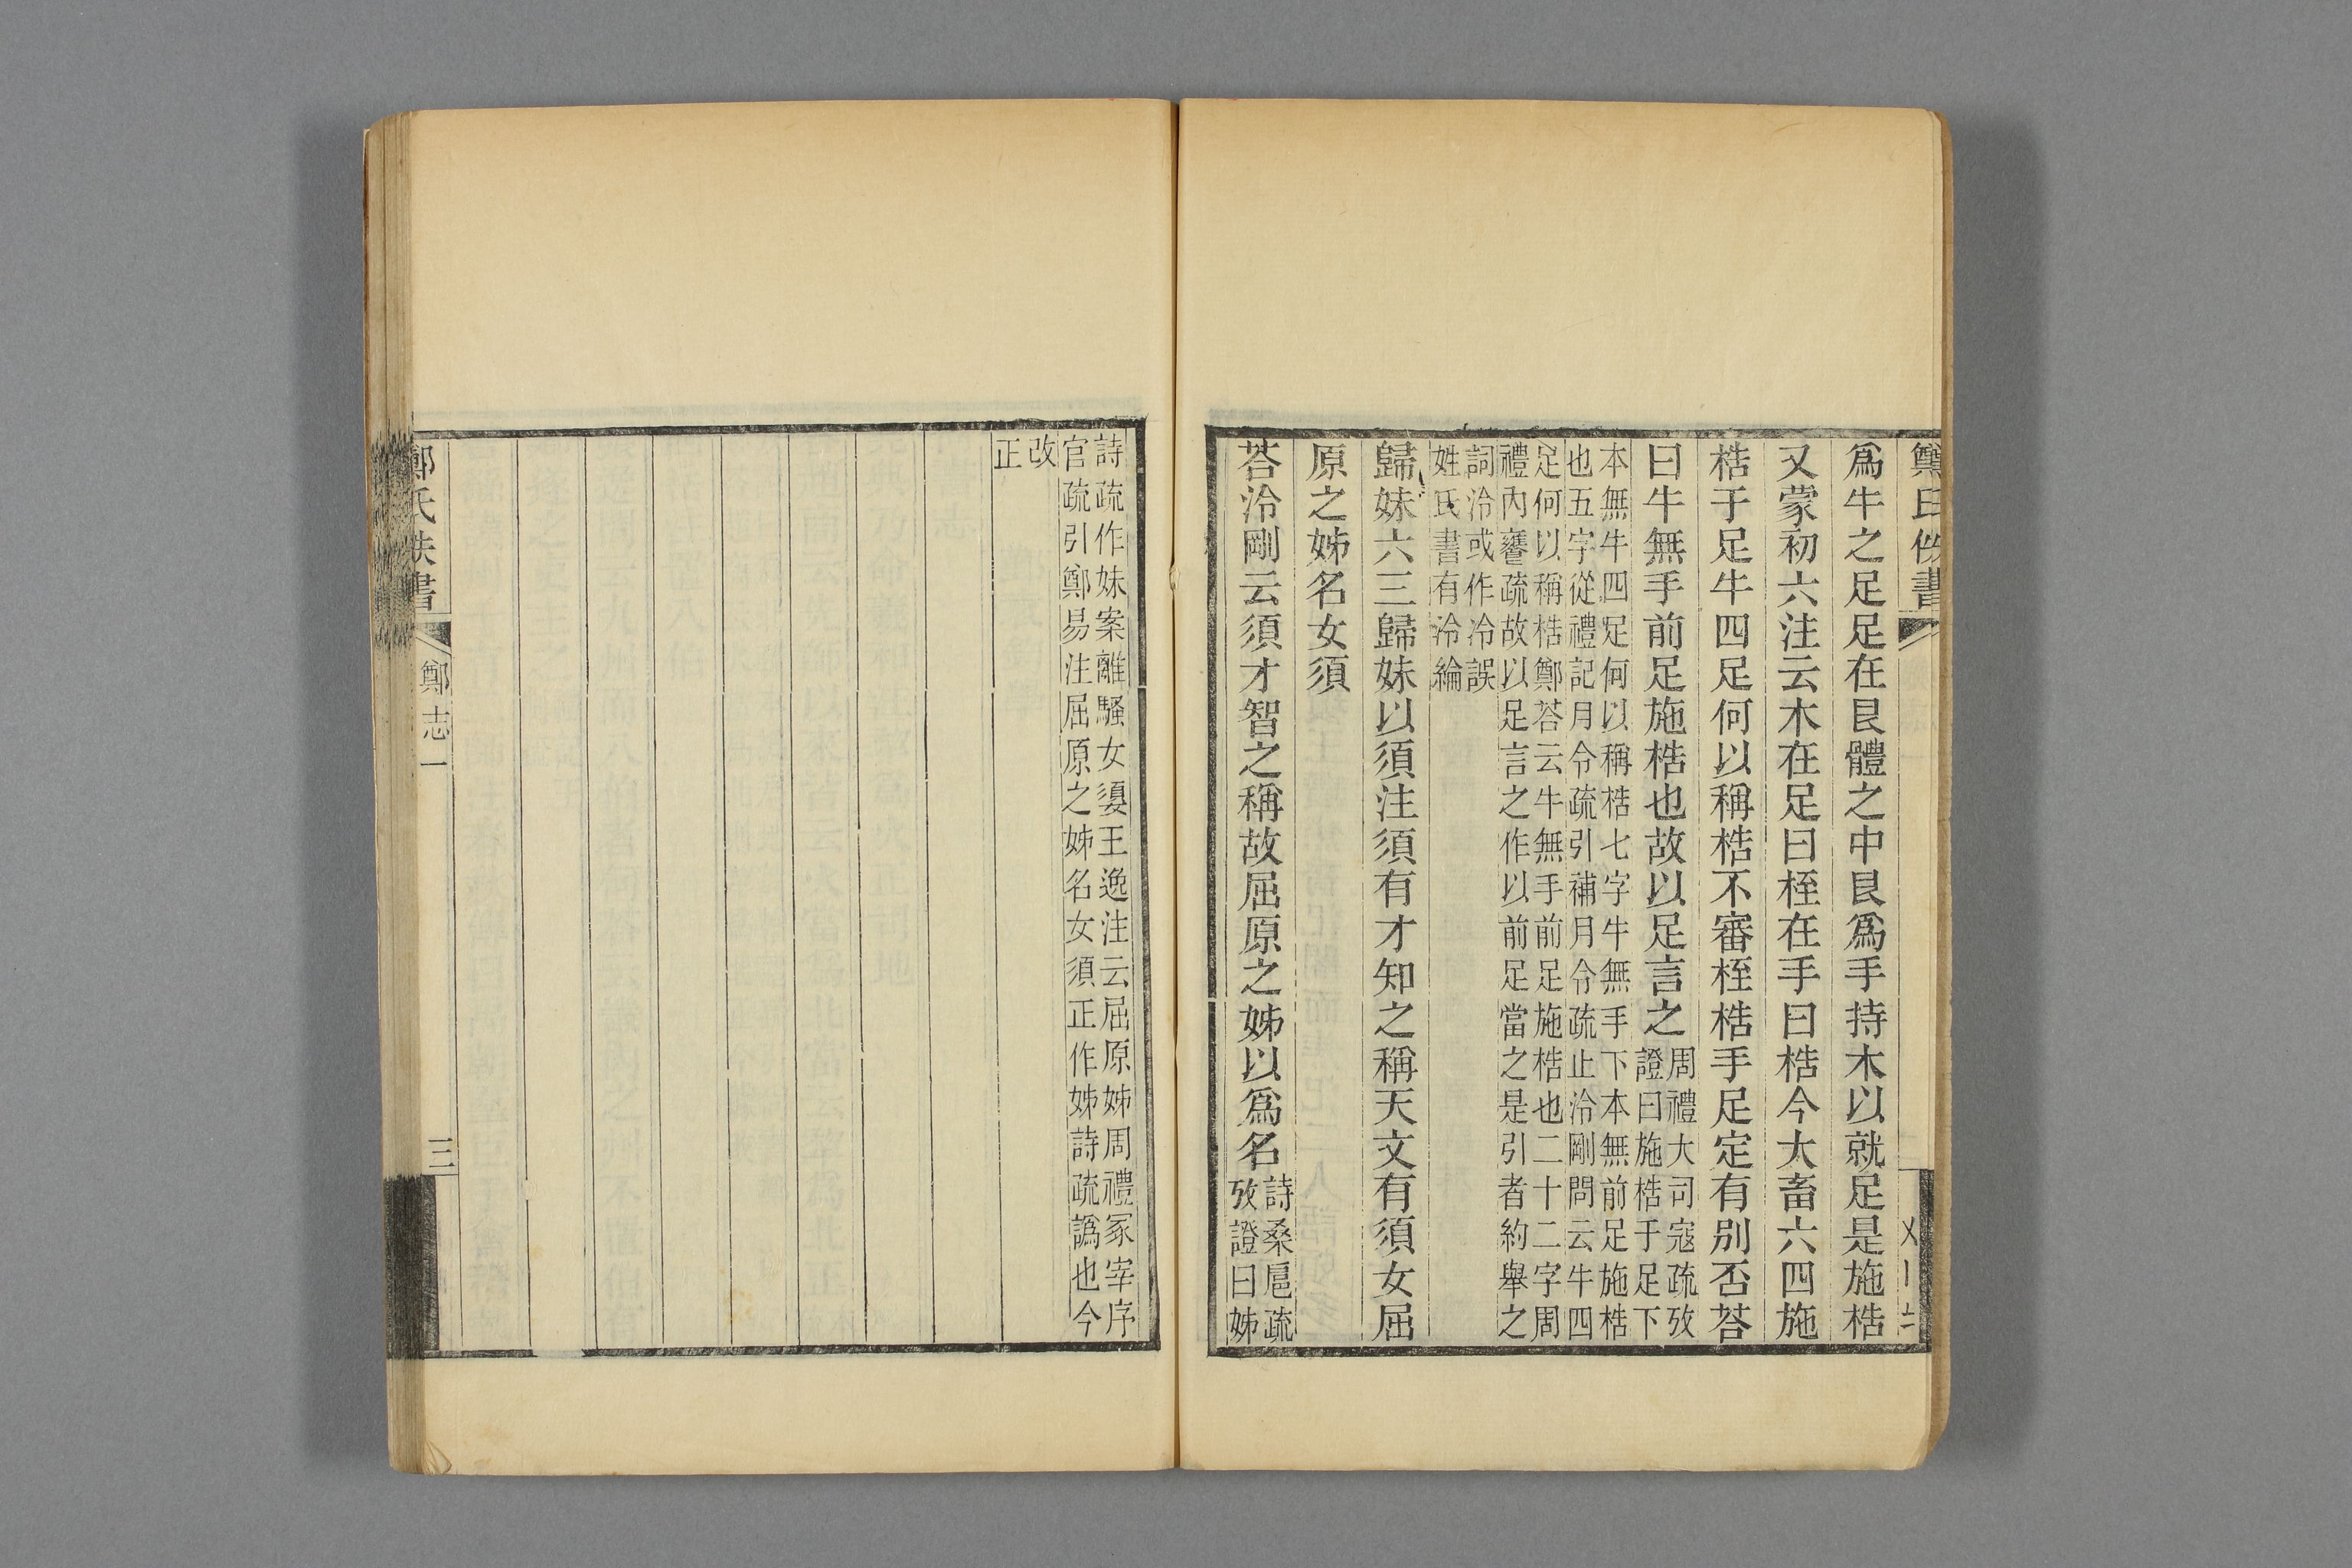 爲牛之足足在艮體之中艮爲手持木以就足是施梏
又蒙初六注云木在足曰桎在手曰梏今大畜六四施
梏于足牛四足何以稱梏不審桎梏手足定有別否荅
曰牛無手前足施梏也故以足言之
周禮大司寇疏攷
證曰施梏于足下
本無牛四足何以稱梏七字牛無手下本無前足施梏
也五字從禮記月令疏引補月令疏止泠剛問云牛四
足何以稱梏鄭荅云牛無手前足施梏也二十二字周
禮內饔疏故以足言之作以前足當之是引者約舉之
詞泠或作冷誤
姓氏書有泠綸
歸妹六三歸妹以須注須有才知之稱天文有須女屈
原之姊名女須
荅泠剛云須才智之稱故屈原之姊以爲名
詩桑扈疏
攷證曰姊
詩疏作妹案離騷女嬃王逸注云屈原姊周禮冢宰序
官疏引鄭易注屈原之姊名女須正作姊詩疏譌也今
改
正
鄭氏佚書
鄭志一
三